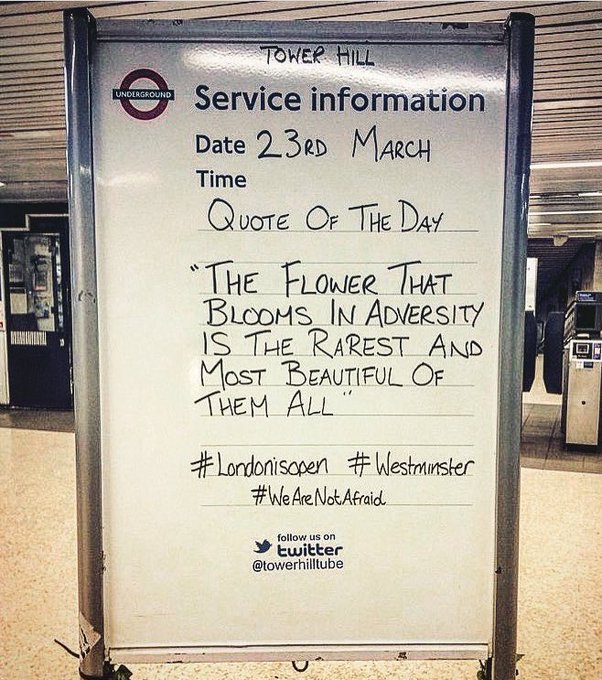 TOWER HILL
UNDERGROUND
Service information
Date 23RD MARCH
Time
QUOTE OF THE DAY
"THE FLOWER THAT
BLOOMS IN ADVERSITY
IS THE RAREST AND
MOST BEAUTIFUL OF
THEM ALL"
#Londonisopen #Westminster
#WeAreNotAfraid
follow us on
twitter
@towerhilltube